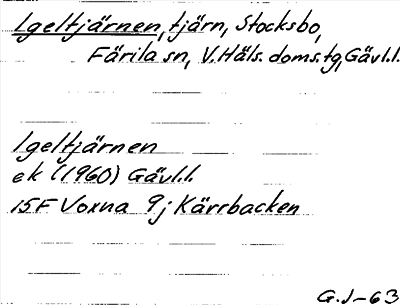 Igeltjärnen, tjärn, Stocksbo,
Färila sn, V. Häls. doms.tg, Gävl.l.
Igeltjärnen
ek (1960) Gävl.l.
15F Voxna 9j Kärrbacken
G.J-63